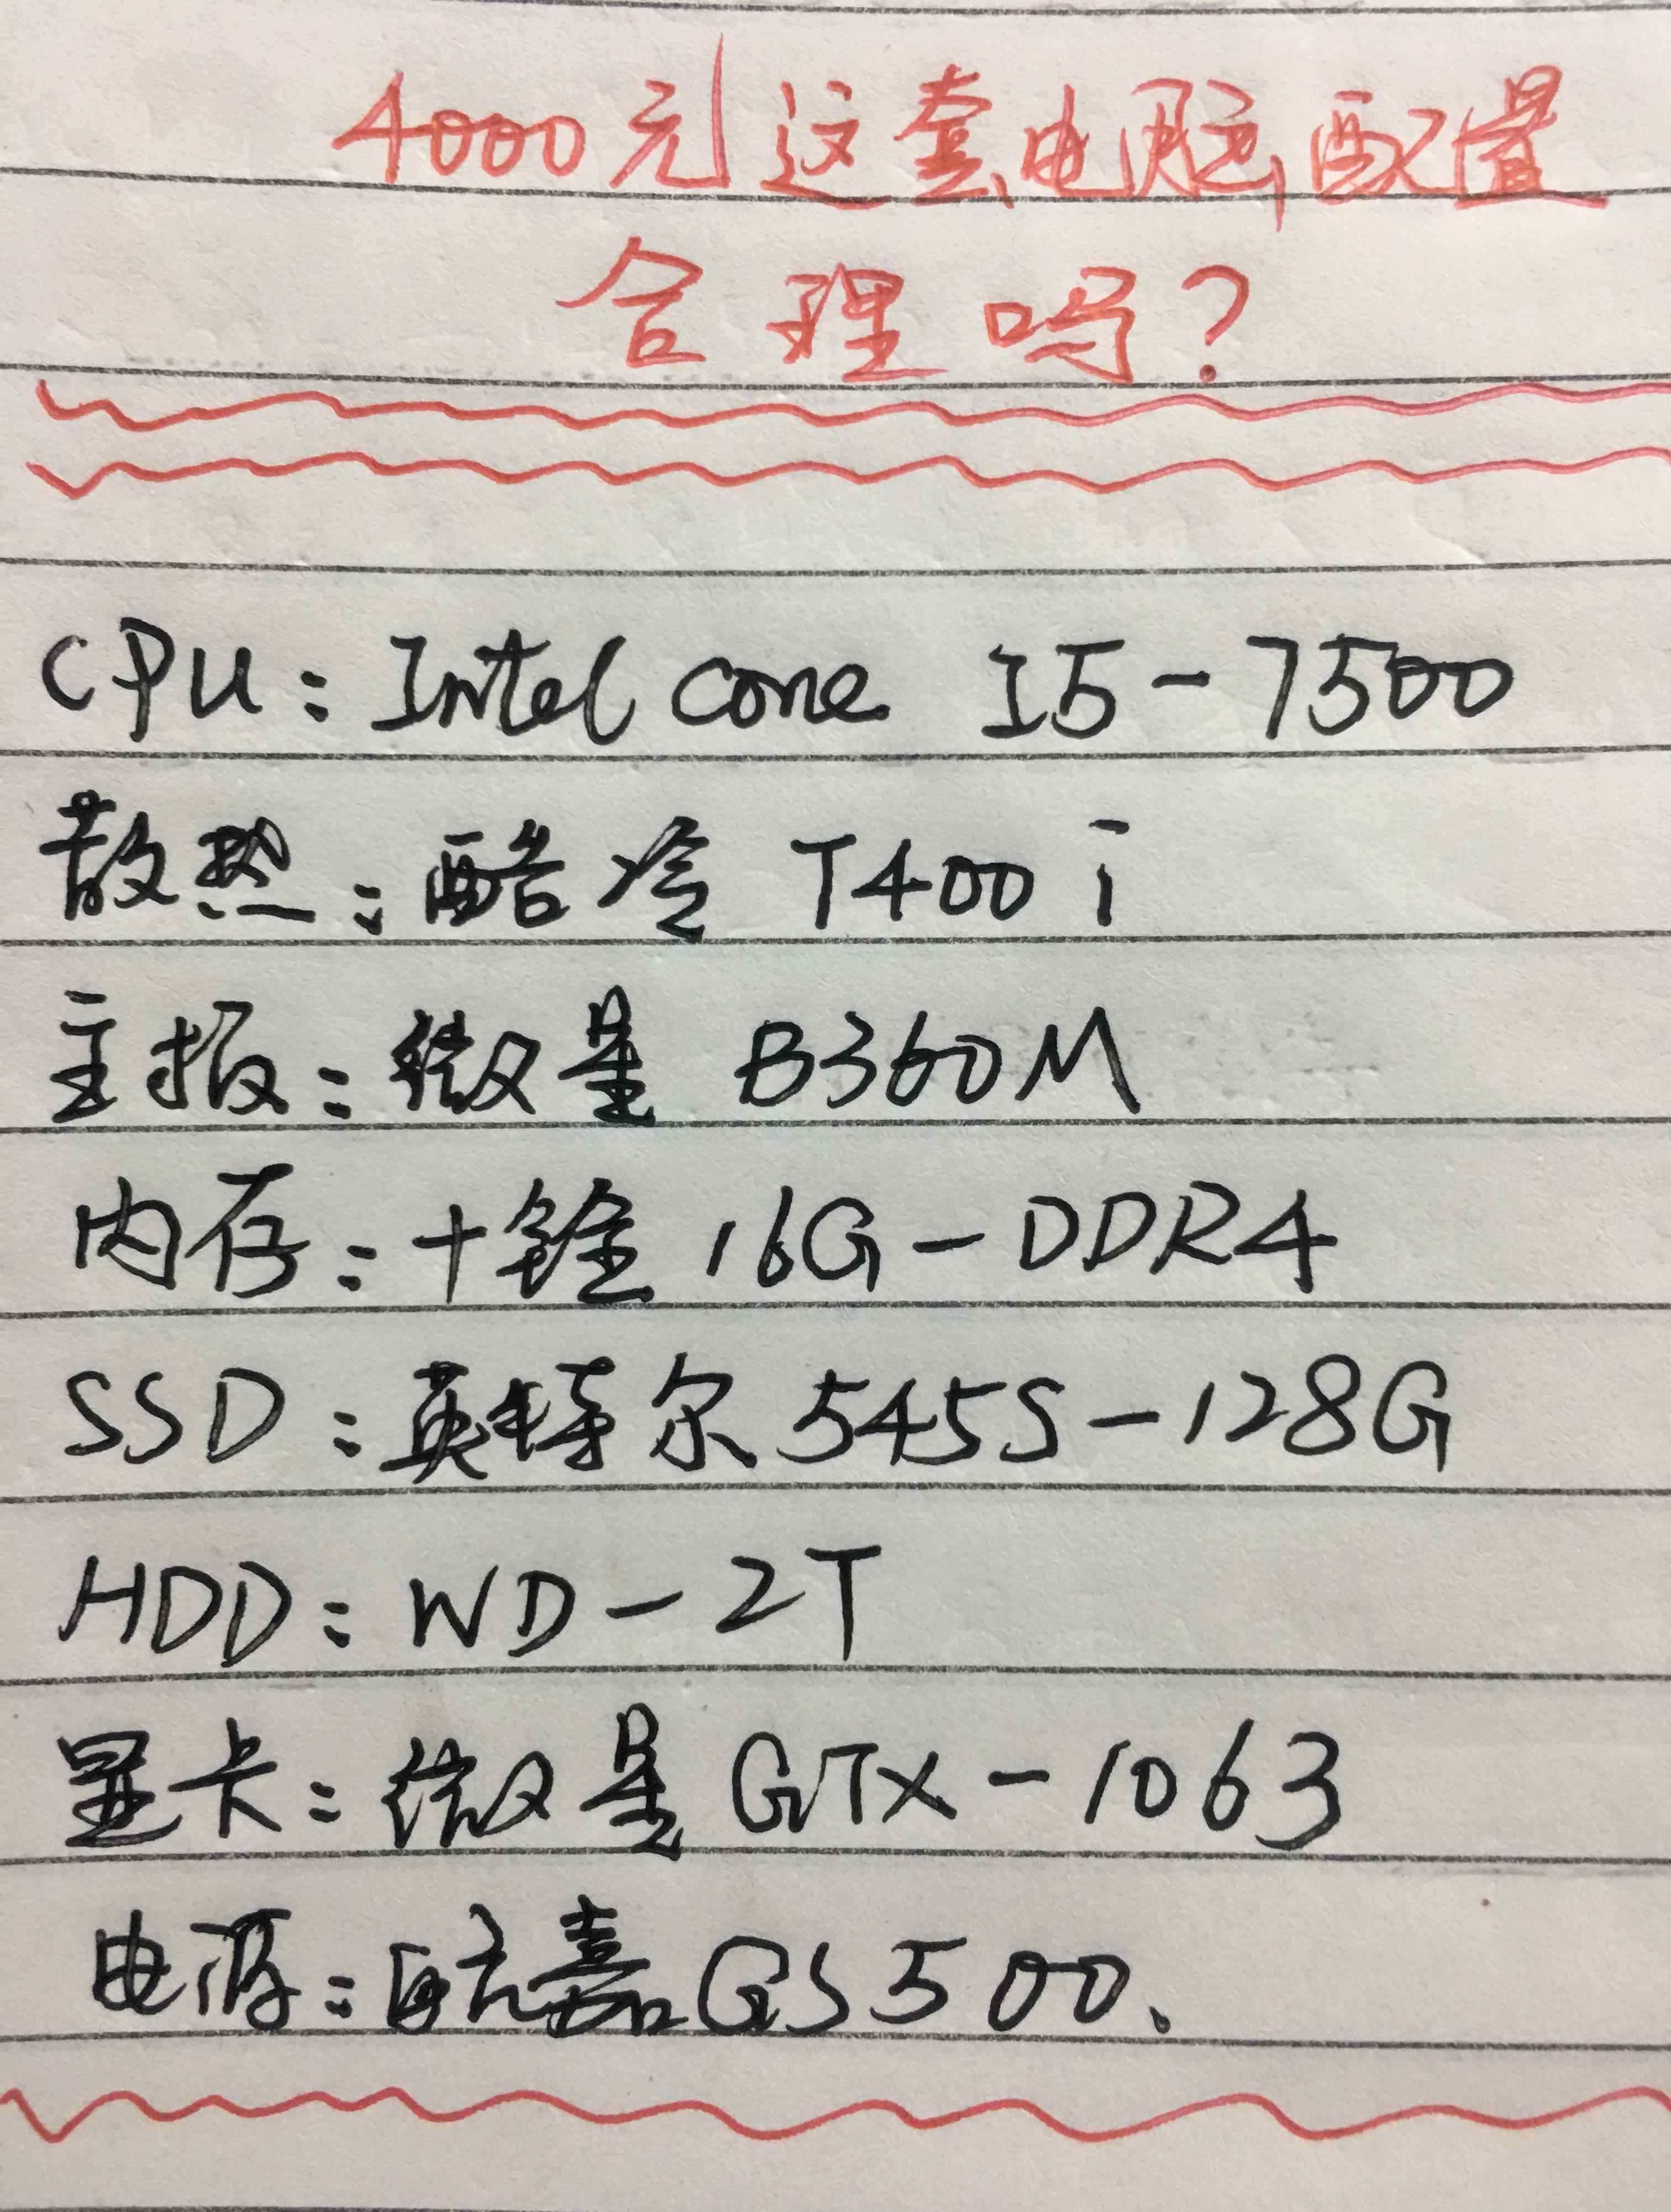 4000元这套电脑配置
合理吗?
CPU: Intel Core I5-7500
散热: 酷冷 T400i
主板: 微星 B360M
内存: 十铨 16G-DDR4
SSD: 英特尔 545S-128G
HDD: WD-2T
显卡: 微星 GTX-1063
电源: 航嘉 GS500.